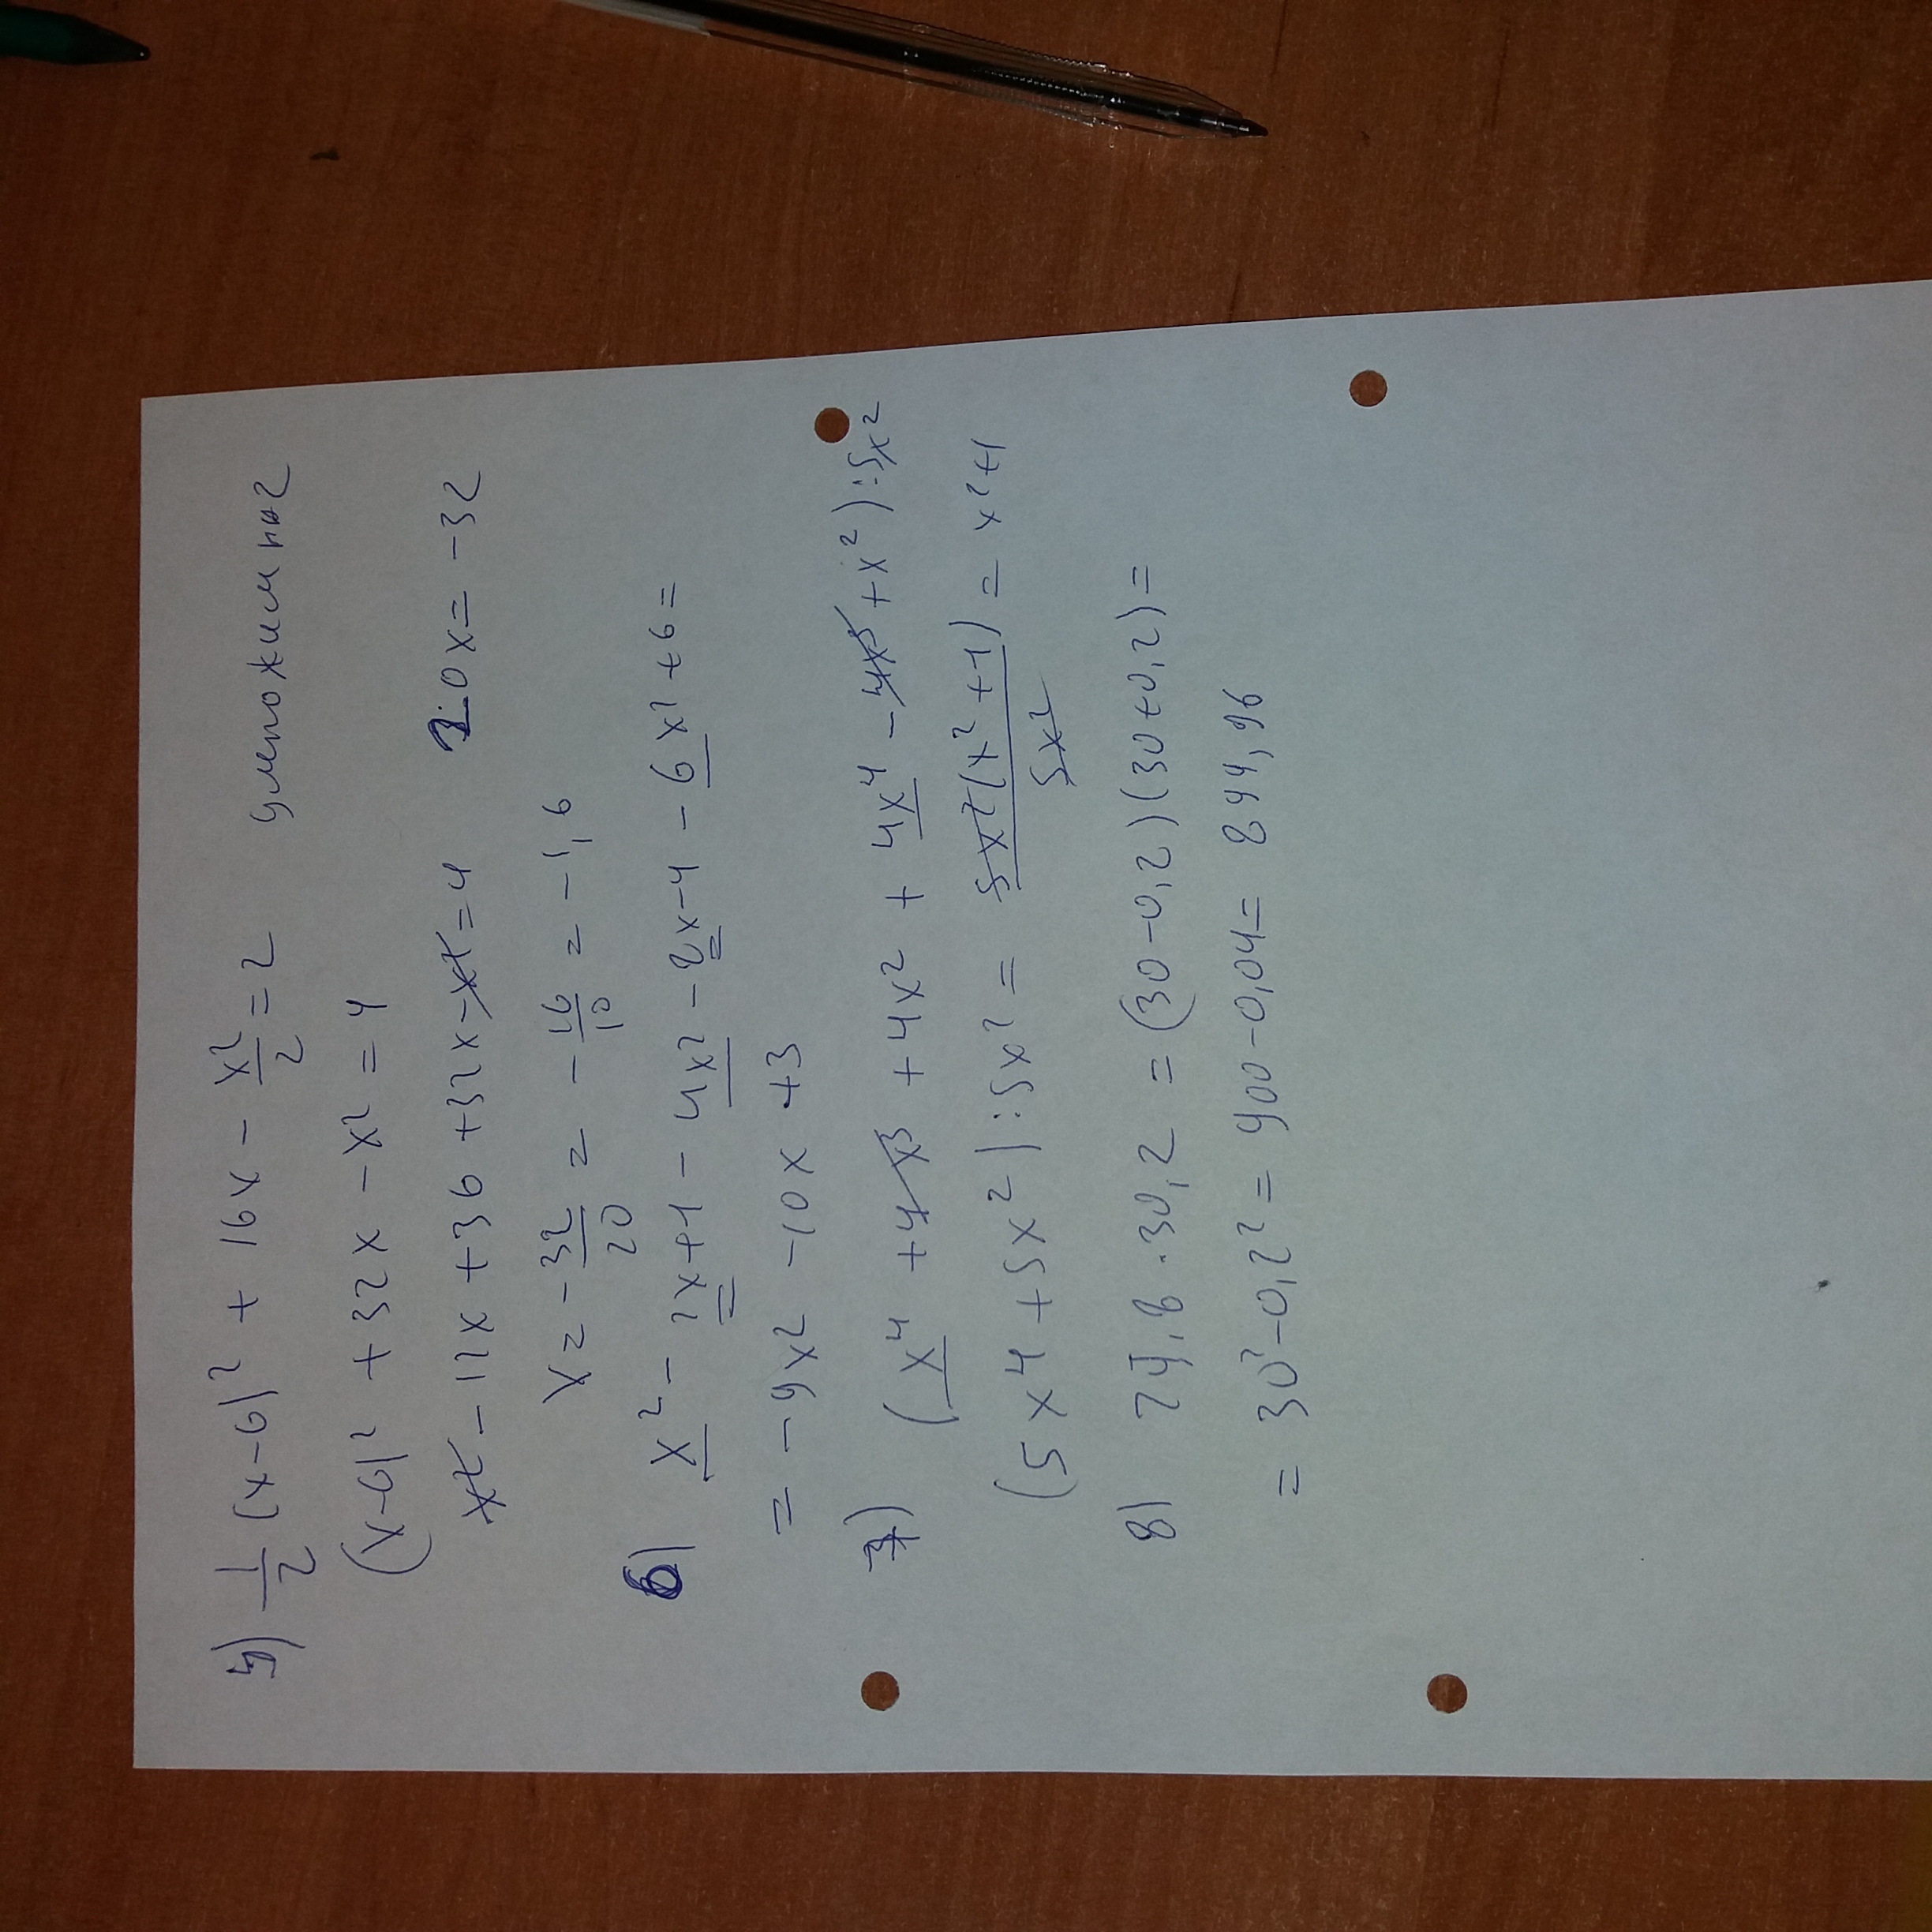 5) 1/2 (x-6)² + 16x - x²/2 = 2 умножим на 2
(x-6)² + 32x - x² = 4
x² - 12x + 36 + 32x - x² = 4 20x = -32
x = -32/20 = -16/10 = -1,6
6) x² - 2x + 1 - 4x² - 8x - 4 - 6x² + 6 =
= -9x² - 10x + 3
7) (x⁴ + 4x³ + 4x² + 4x⁴ - 4x³ + x²) : 5x²
(5x⁴ + 5x²) : 5x² = 5x²(x²+1)/5x² = x²+1
8) 29,8 · 30,2 = (30-0,2)(30+0,2) =
= 30² - 0,2² = 900 - 0,04 = 899,96